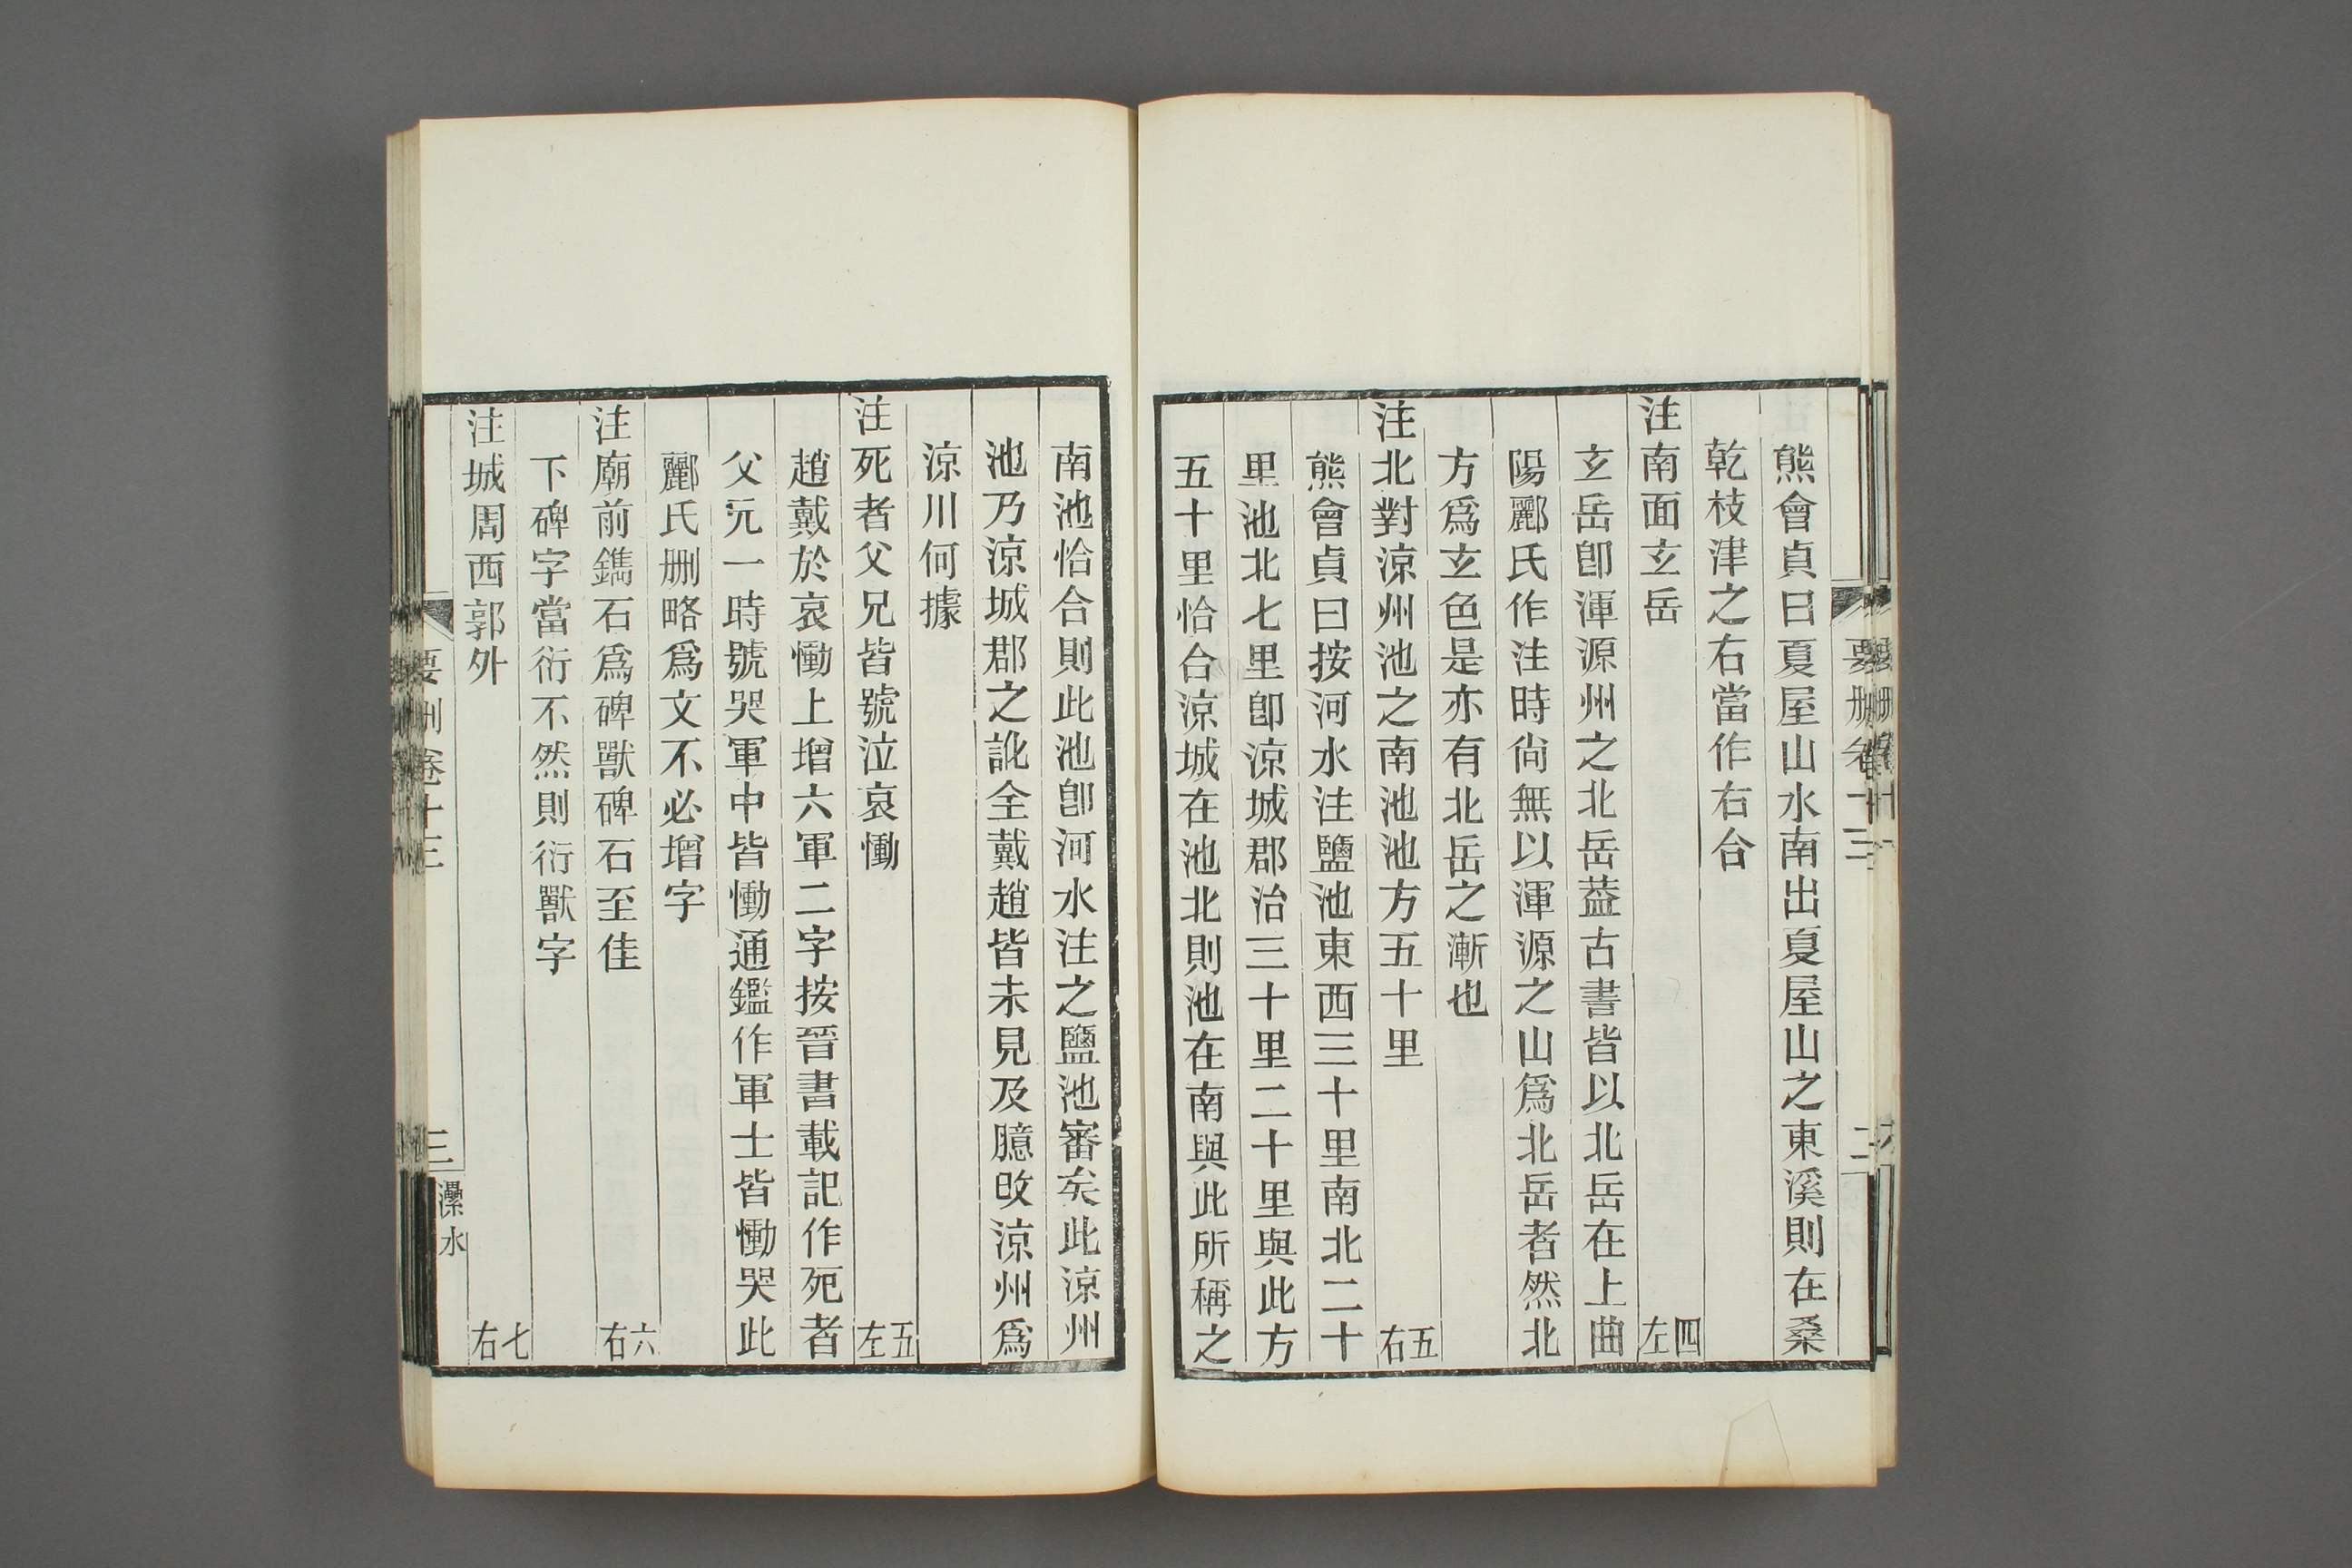 要删卷十三
二
熊會貞曰夏屋山水南出夏屋山之東溪則在桑
乾枝津之右當作右合
注南面玄岳
四左
玄岳卽渾源州之北岳葢古書皆以北岳在上曲
陽酈氏作注時尙無以渾源之山爲北岳者然北
方爲玄色是亦有北岳之漸也
注北對涼州池之南池池方五十里
五右
熊會貞曰按河水注鹽池東西三十里南北二十
里池北七里卽涼城郡治三十里二十里與此方
五十里恰合涼城在池北則池在南與此所稱之
南池恰合則此池卽河水注之鹽池審矣此涼州
池乃涼城郡之訛全戴趙皆未見及臆改涼州爲
涼川何據
注死者父兄皆號泣哀慟
五左
趙戴於哀慟上增六軍二字按晉書載記作死者
父兄一時號哭軍中皆慟通鑑作軍士皆慟哭此
酈氏删略爲文不必增字
注廟前鐫石爲碑獸碑石至佳
六右
下碑字當衍不然則衍獸字
注城周西郭外
七右
要删卷十三
三
灅水